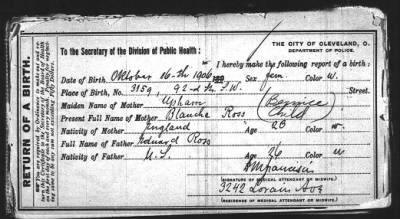 RETURN OF A BIRTH.
THE CITY OF CLEVELAND, O.
DEPARTMENT OF POLICE.
To the Secretary of the Division of Public Health:
I hereby make the following report of a birth:
Date of Birth Oktober 16-th 1906 Sex fem. Color W.
Place of Birth, No. 3159, 92-d St. S.W. Street.
Maiden Name of Mother Upham
Present Full Name of Mother Blanche Ross
(Bernice Child)
Nativity of Mother England Age 23 Color W.
Full Name of Father Eduard Ross
Nativity of Father U.S. Age 26 Color W
(SIGNATURE OF MEDICAL ATTENDANT OR MIDWIFE.)
3242 Lorain Ave
(RESIDENCE OF MEDICAL ATTENDANT OR MIDWIFE.)